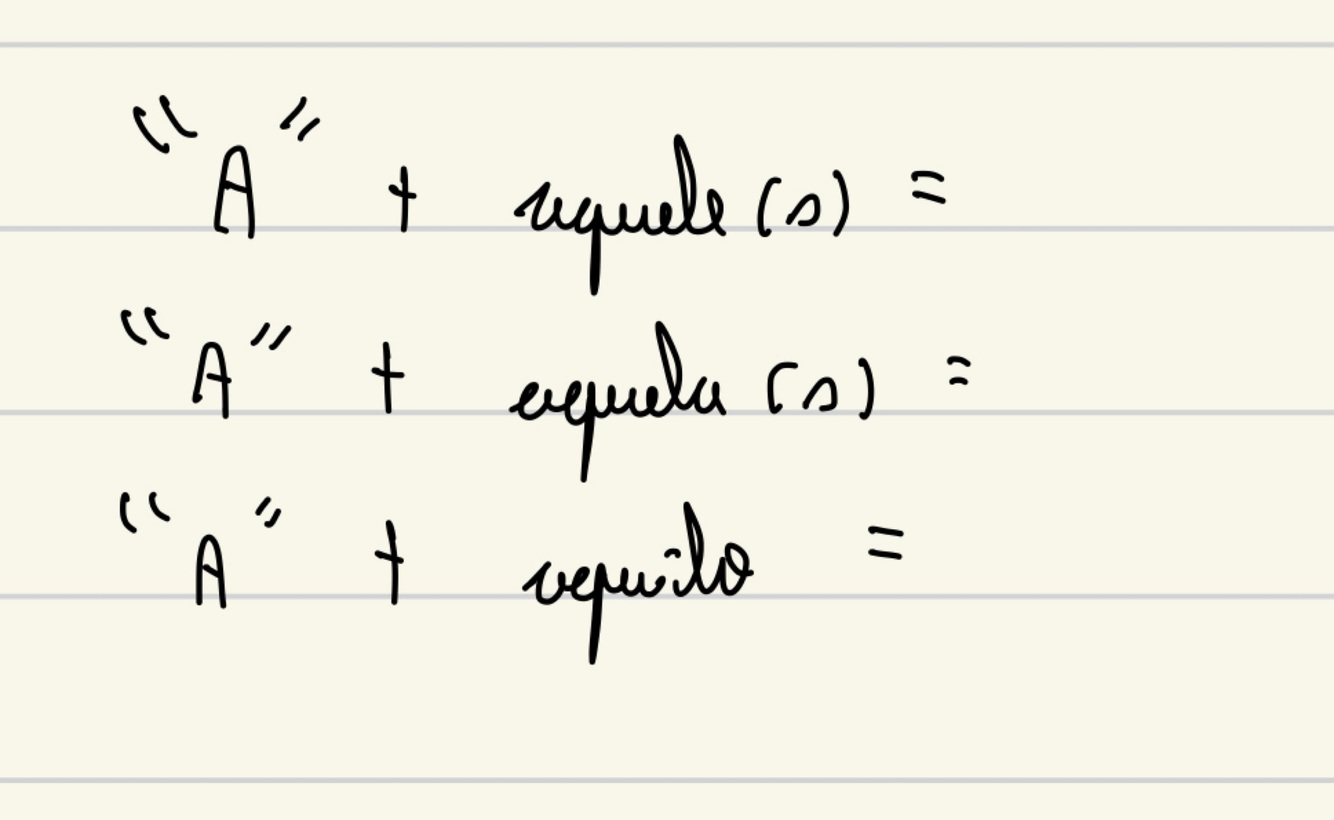 "A" + aquele(s) =
"A" + aquela(s) =
"A" + aquilo =